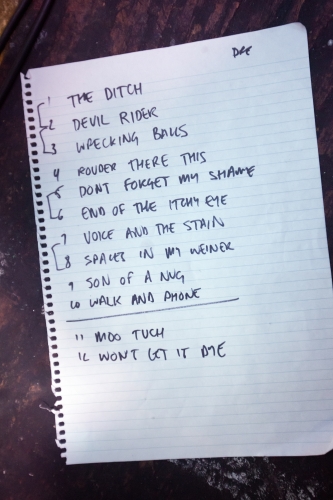 DAE
1 THE DITCH
2 DEVIL RIDER
3 WRECKING BALLS
4 ROUDER THERE THIS
5 DONT FORGET MY SHAME
6 END OF THE ITCHY EYE
7 VOICE AND THE STAIN
8 SPACES IN MY WEINER
9 SON OF A NUG
10 WALK AND PHONE
11 MDO TUCH
12 WONT GET IT DYE